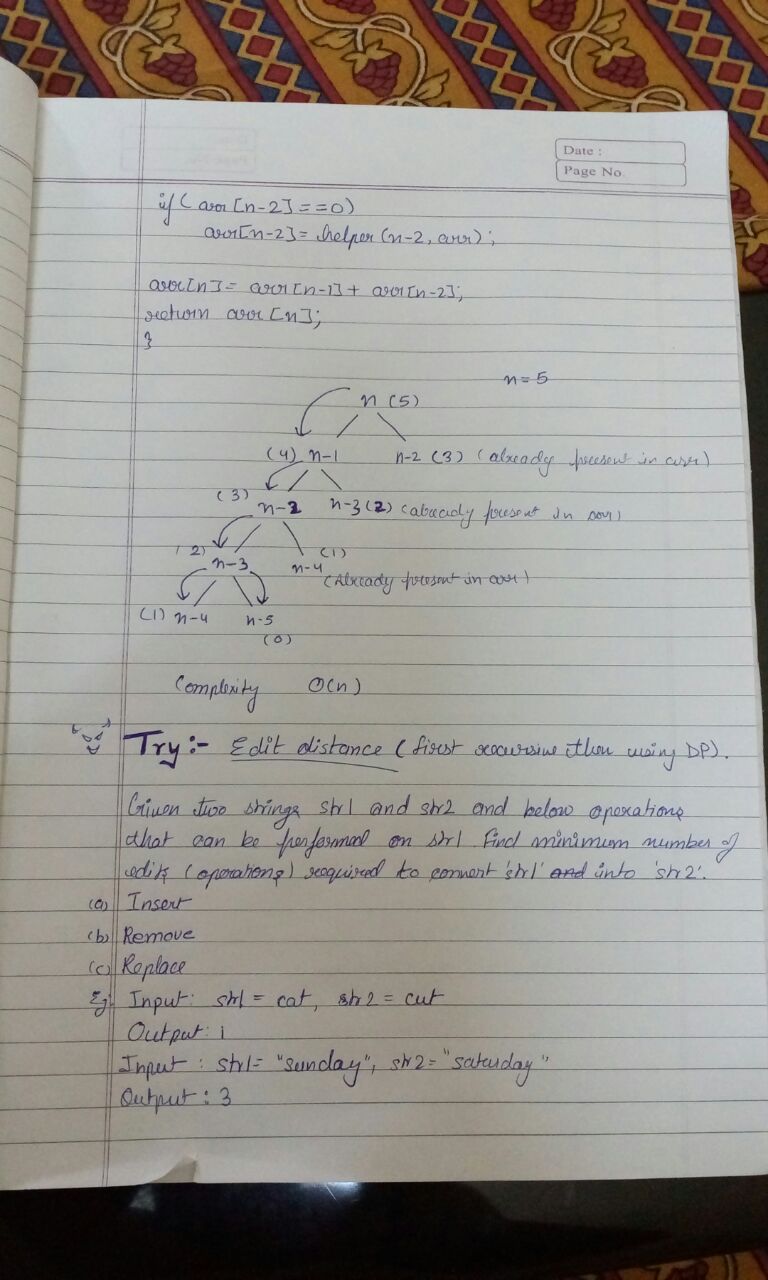 Date :
Page No.
if ( arr [n-2] = = 0)
arr[n-2] = helper (n-2, arr) ;
arr[n] = arr [n-1] + arr[n-2];
return arr [n];
}
n = 5
n (5)
(4) n-1 n-2 (3) (already present in arr)
(3) n-2 n-3 (2) (already present in arr)
(2) n-3 n-4 (1)
(Already present in arr)
(1) n-4 n-5
(0)
Complexity O(n)
Try:- Edit distance (first recursive then using DP).
Given two strings str1 and str2 and below operations
that can be performed on str1. Find minimum number of
edits (operations) required to convert 'str1' and into 'str2'.
(a) Insert
(b) Remove
(c) Replace
Eg: Input: str1 = cat, str2 = cut
Output: 1
Input : str1= "sunday", str2= "saturday"
Output : 3